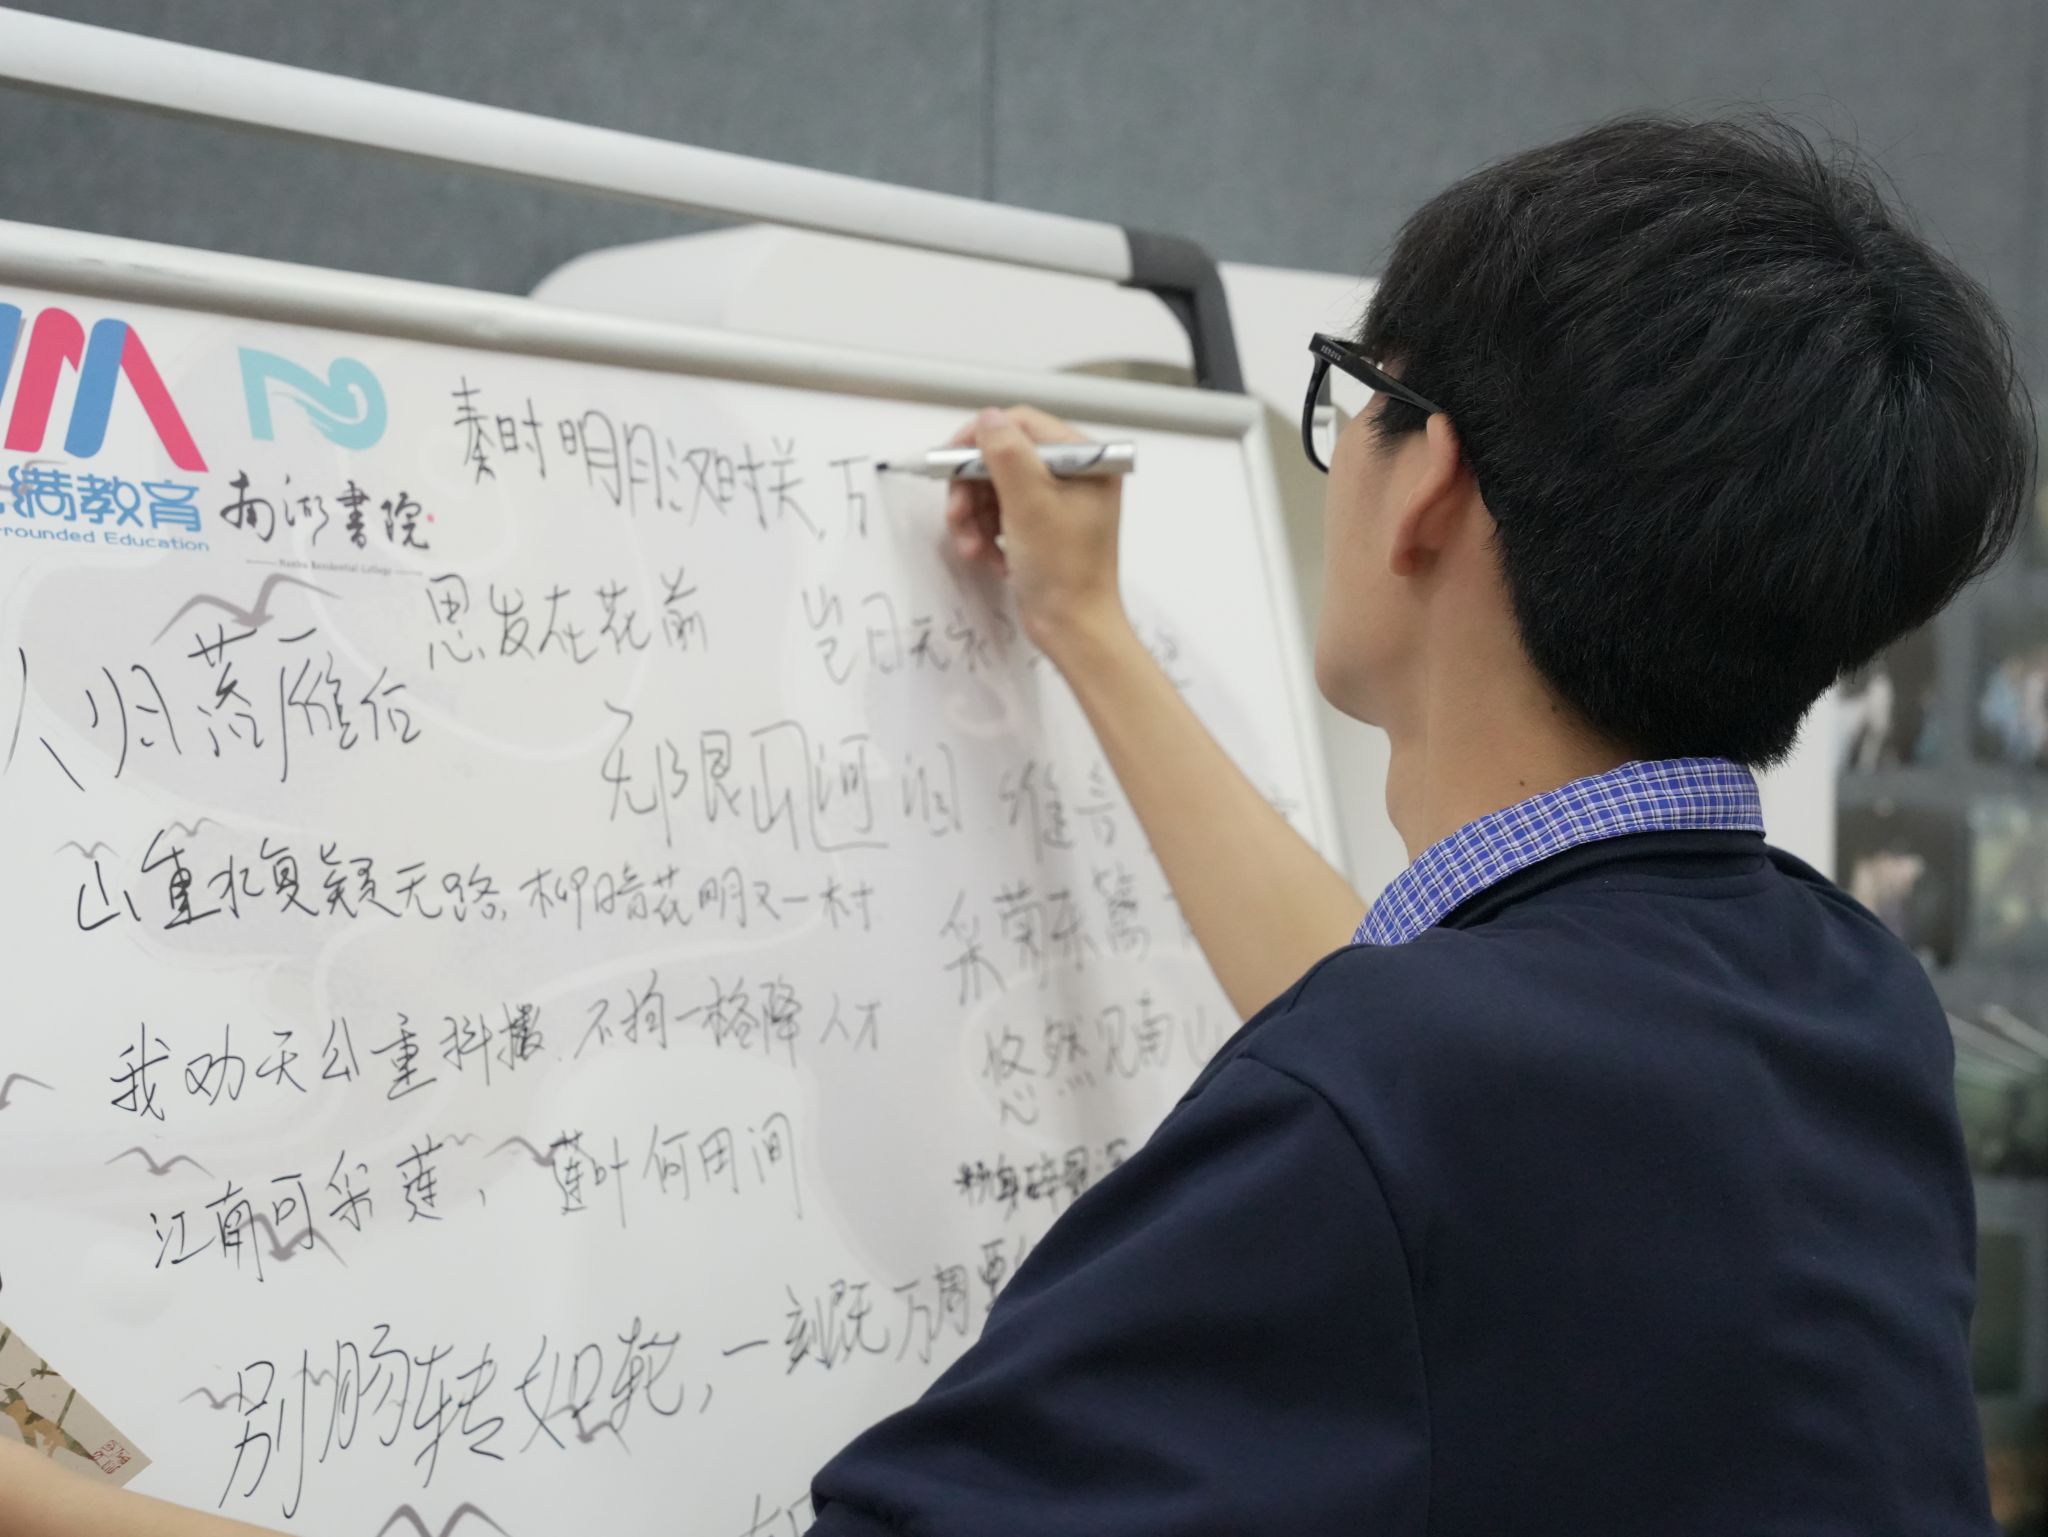 教育
rrounded Education
南湖书院
Nanhu Residential College
秦时明月汉时关,万
思发在花前
岂曰无衣
人归落雁后
无限山河泪
山重水复疑无路,柳暗花明又一村
采菊东篱
我劝天公重抖擞,不拘一格降人才
悠然见南山
江南可采莲,莲叶何田间
粉身碎骨浑
别肠转如轮,一刻既万周